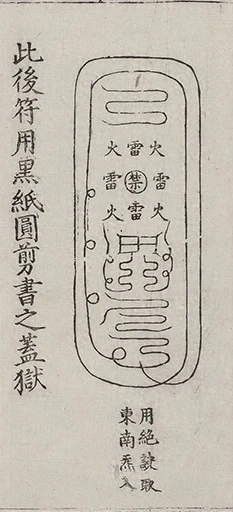 火雷火
雷禁雷
火雷火
用絶訣取
東南炁入
此後符用黒紙圓剪書之蓋獄